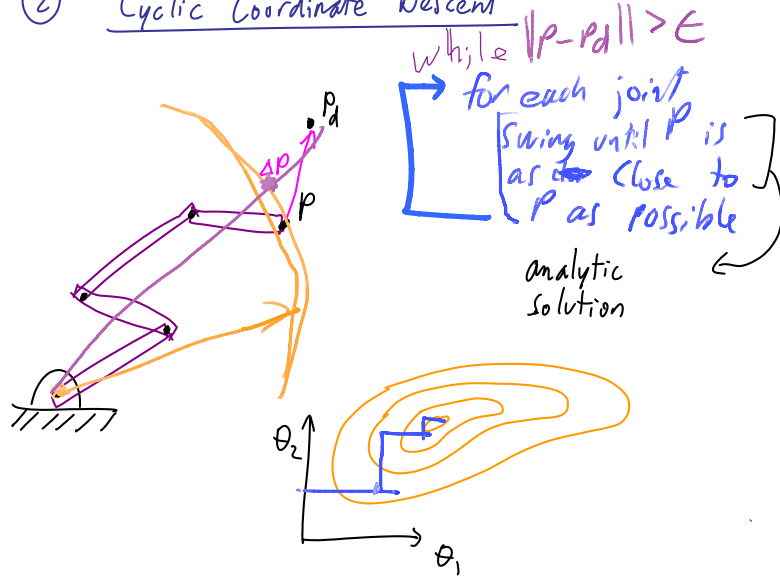 2 Cyclic Coordinate Descent
while ||P-Pd|| > ϵ
for each joint
Swing until P is
as close to
P as possible
analytic
solution
Pd
ΔP
P
θ2
θ1